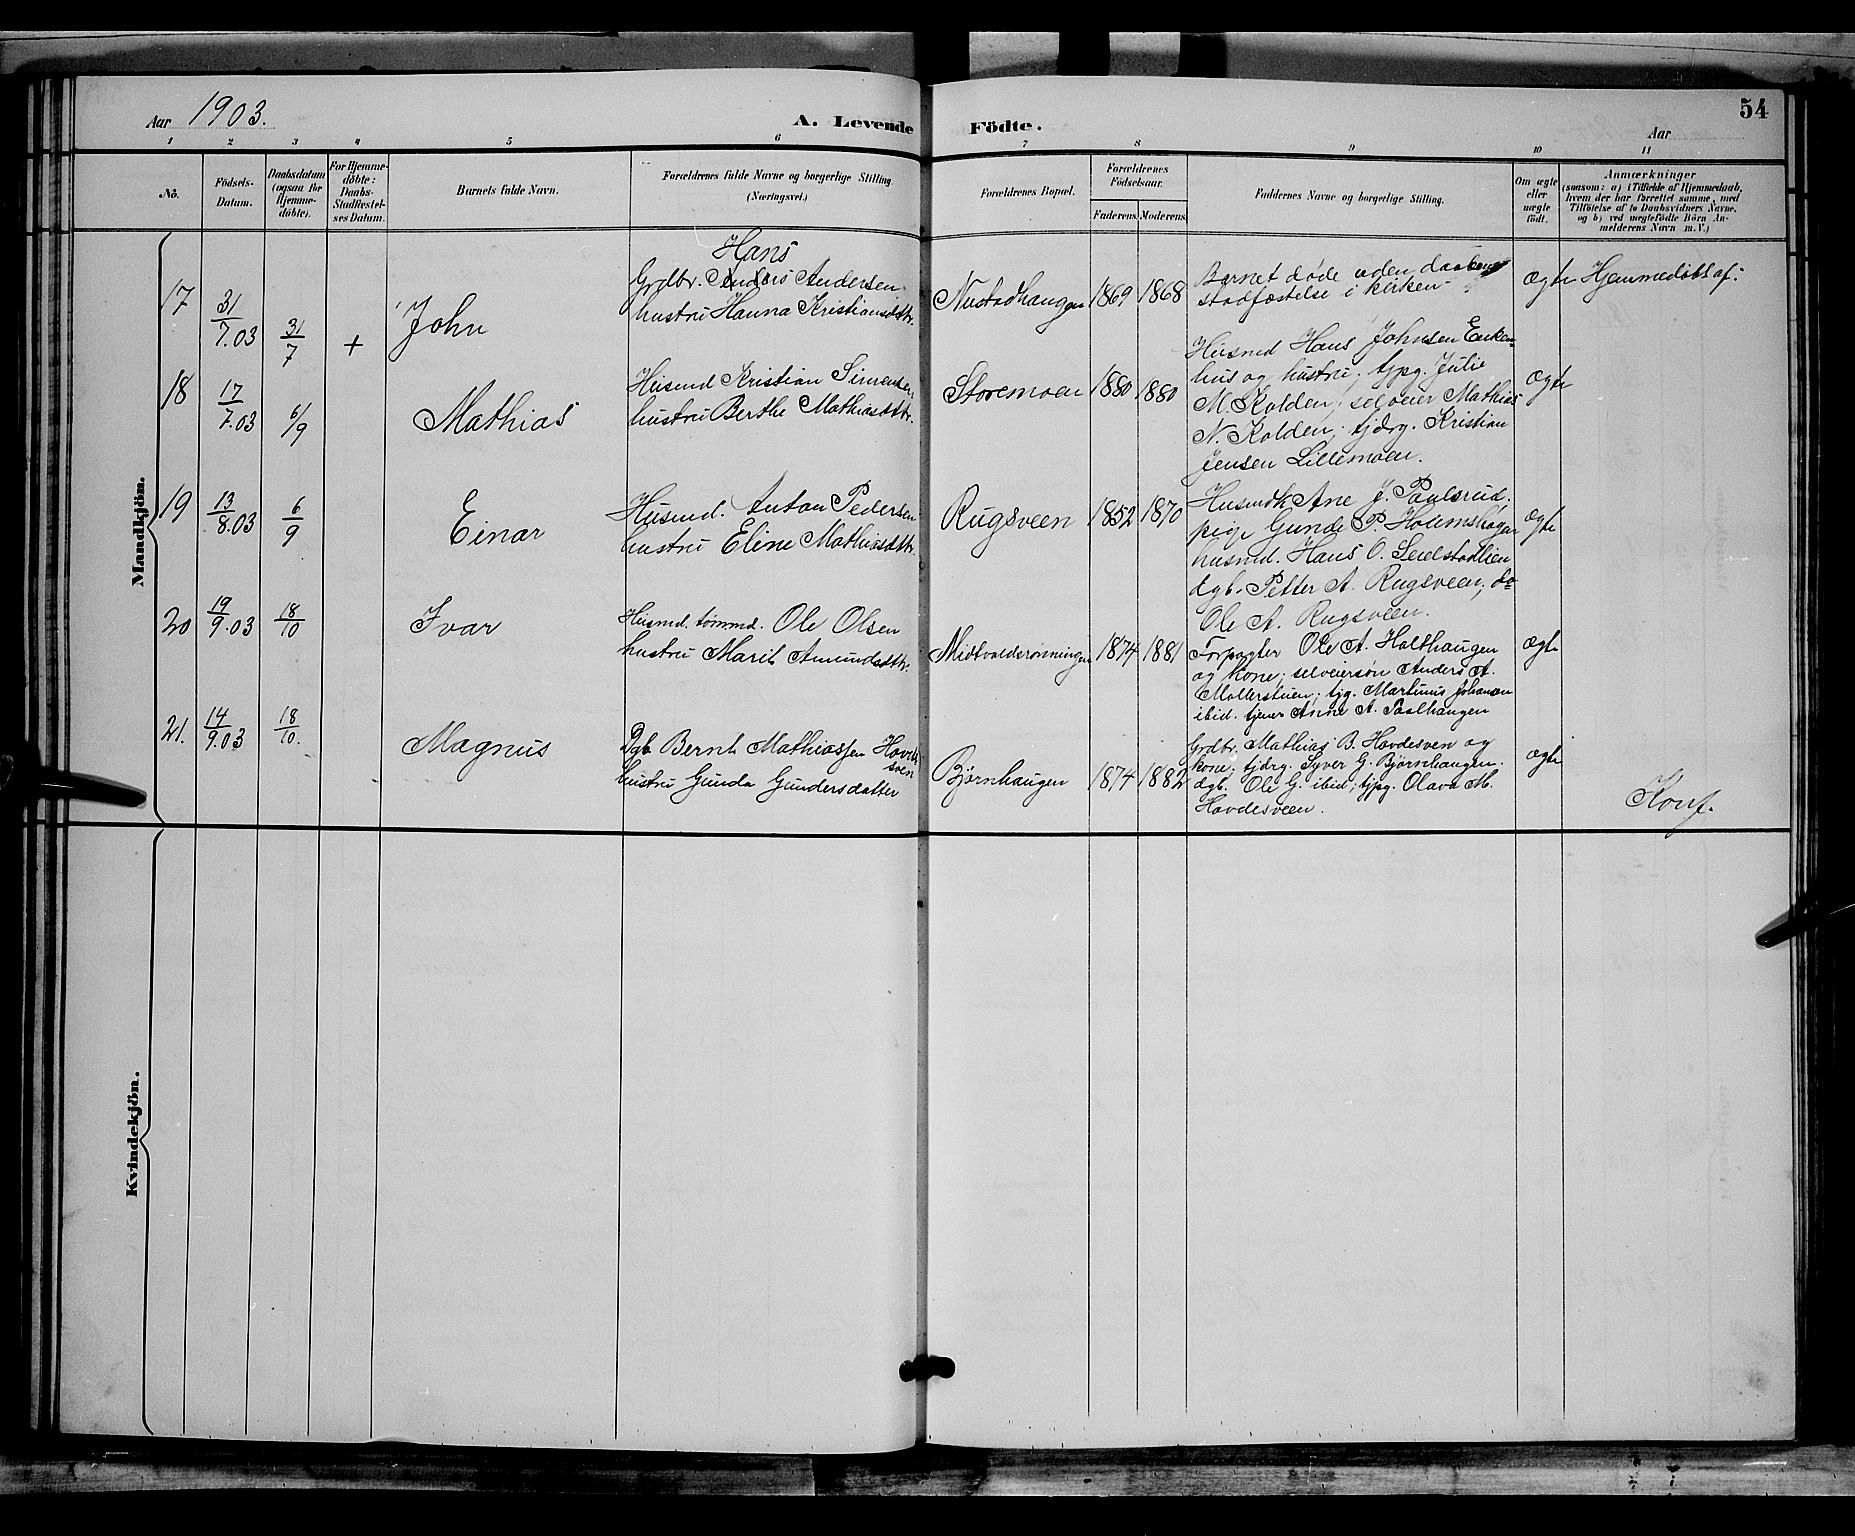 Aar 1903.
A. Levende Födte.
54
Aar
1 2 3 4 5 6 7 8 9 10 11
No.
Födsels-Datum.
Daabsdatum (ogsaa for Hjemmedöbte).
For Hjemmedöbte: Daabs-Stadfæstelses Datum.
Barnets fulde Navn.
Forældrenes fulde Navne og borgerlige Stilling (Næringsvei.)
Forældrenes Bopæl.
Forældrenes Födselsaar.
Faderens. Moderens.
Faddernes Navne og borgerlige Stilling.
Om ægte eller uægte födt.
Anmærkninger
(saasom: a) i Tilfælde af Hjemmedaab,
hvem der har forrettet samme, med
Tilföielse af to Daabsvidners Navne,
og b) ved uegtefödte Börn An-
melderens Navn m. V.)
Mandkjön.
17 31/7.03 31/7 + John
Hans
Grdbr. Anders Andersen
hustru Hanna Kristiansdttr.
Nustadhaugen 1869 1868
Barnet døde uden daabens
stadfæstelse i kirken
ægte Hjemmedøbt af:
18 17/7.03 6/9 Mathias
Husmd Kristian Simensen
hustru Berthe Mathiasdttr.
Storemoen 1880 1880
Husmd Hans Johnsen Enken-
hus og hustru; tjpg. Julie
M. Kolden; selveier Mathias
N. Kolden; tjdrg. Kristian
Jensen Lillemoen.
ægte
19 13/8.03 6/9 Einar
Husmd. Anton Pedersen
hustru Eline Mathiasdttr.
Rugsveen 1852 1870
Husmdk Ane J. Paulsrud.
pige Gunde P. Holmshagen
husmd. Hans O. Seielstadlien
dgb. Petter A. Rugsveen; do
Ole A. Rugsveen.
ægte
20 19/9.03 18/10 Ivar
Husmd. tømmd. Ole Olsen
hustru Marit Amundsdttr.
Midtvolderønningen 1874 1881
Forpagter Ole A. Holthaugen
og kone; selveiersøn Anders A.
Møllerstuen; tjg. Martinus Johansen
ibid. tjener Anne A. Paalhaugen
ægte
21. 14/9.03 18/10. Magnus
Dgb. Bernt Mathiassen Hovde
sven
hustru Gunda Gundersdatter
Bjørnhaugen 1874 1882
Grdbr. Mathias B. Hovdesven og
kone; tjdrg. Syver G. Bjørnhaugen.
dgb. Ole G. ibid; tjpg. Olava M.
Hovdesveen.
ægte
Konf.
Kvindekjön.